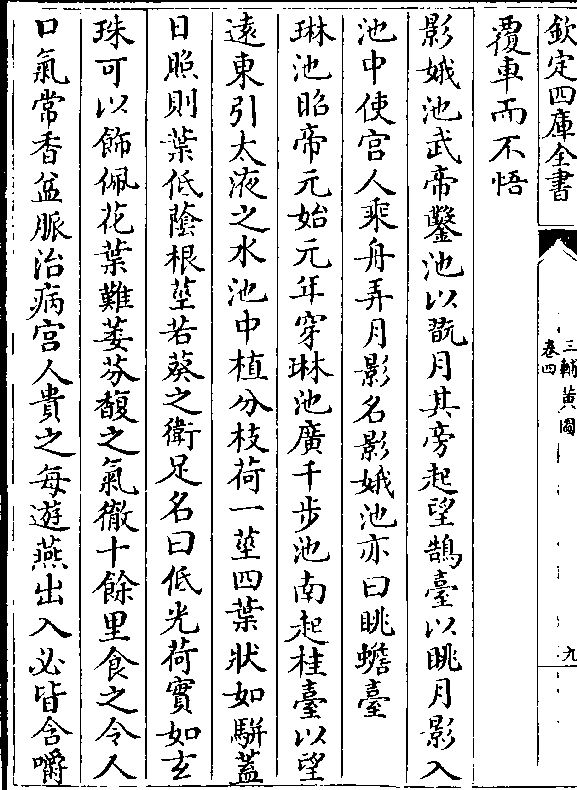 欽定四庫全書
三輔黄圖
卷四
九
覆車而不悟
影娥池武帝鑿池以翫月其旁起望鵠臺以眺月影入
池中使宫人乘舟弄月影名影娥池亦曰眺蟾臺
琳池昭帝元始元年穿琳池廣千步池南起桂臺以望
逺東引太液之水池中植分枝荷一莖四葉狀如駢蓋
日照則葉低蔭根莖若葵之衛足名曰低光荷實如玄
珠可以飾佩花葉難萎芬馥之氣徹十餘里食之令人
口氣常香益脈治病宫人貴之每遊燕出入必皆含嚼